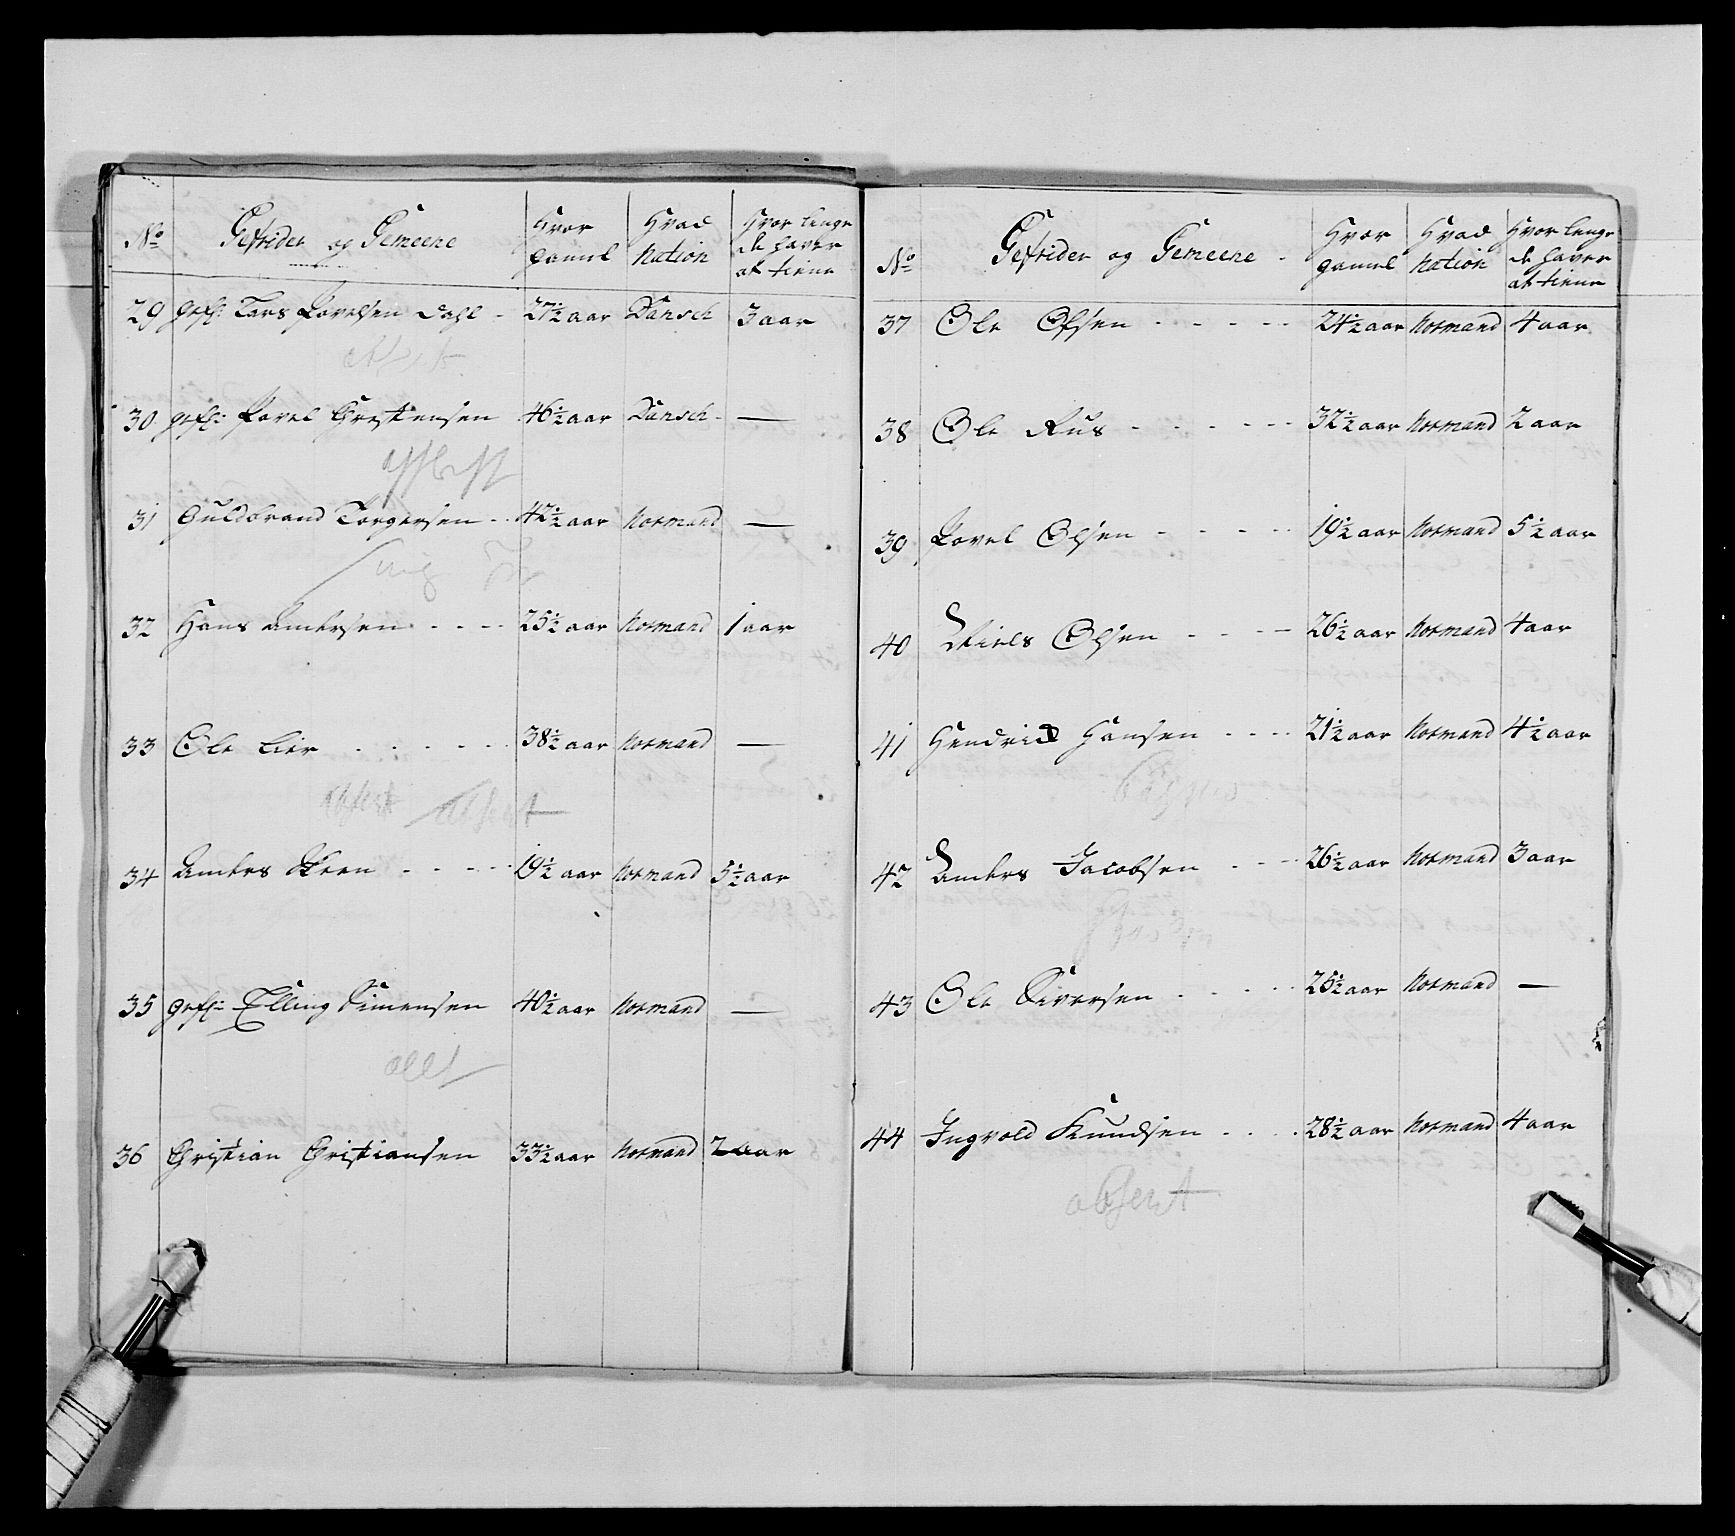 No Gefrider og Gemeene Hvor gamel Hvad Nation Hvor lenge de haver at tiene
29 Gefr: Lars Povelsen Dahl - 27½ aar Dansch 3 aar
30 Gefr: Povel Christensen 46½ aar Dansch -
31 Guldbrand Torgersen - 42½ aar Normand -
32 Hans Andersen - - - 25½ aar Normand 1 aar
33 Ole Lier - - - 38½ aar Normand -
absent absent
34 Anders Skeen - - - 19½ aar Normand 5½ aar
35 Gefr: Elling Simensen 40½ aar Normand -
36 Christian Christiansen 33½ aar Normand 2 aar
No Gefrider og Gemeene Hvor gamel Hvad Nation Hvor lenge de haver at tiene
37 Ole Olsen - - - 24½ aar Normand 4 aar
38 Ole Rus - - - 32½ aar Normand 2 aar
39 Povel Olsen - - - 19½ aar Normand 5½ aar
40 Niels Olsen - - - 26½ aar Normand 4 aar
41 Hendrich Hansen - - - 21½ aar Normand 4½ aar
42 Anders Jacobsen - - - 26½ aar Normand 3 aar
43 Ole Siversen - - - 25½ aar Normand -
44 Ingvold Knudsen - - - 28½ aar Normand 4 aar
absent